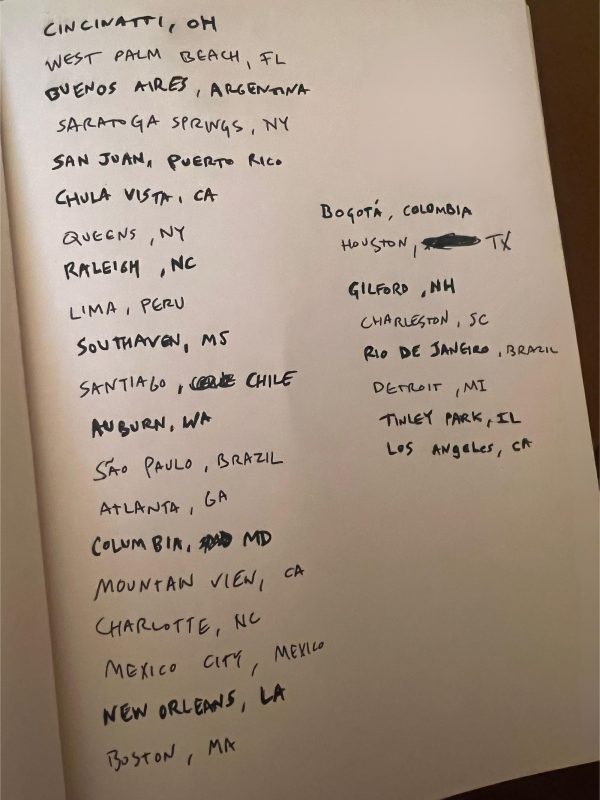 CINCINATTI, OH
WEST PALM BEACH, FL
BUENOS AIRES, ARGENTINA
SARATOGA SPRINGS, NY
SAN JUAN, PUERTO RICO
CHULA VISTA, CA
QUEENS, NY
RALEIGH, NC
LIMA, PERU
SOUTHAVEN, MS
SANTIAGO, CHILE
AUBURN, WA
SÃO PAULO, BRAZIL
ATLANTA, GA
COLUMBIA, MD
MOUNTAIN VIEW, CA
CHARLOTTE, NC
MEXICO CITY, MEXICO
NEW ORLEANS, LA
BOSTON, MA
BOGOTÁ, COLOMBIA
HOUSTON, TX
GILFORD, NH
CHARLESTON, SC
RIO DE JANEIRO, BRAZIL
DETROIT, MI
TINLEY PARK, IL
LOS ANgeLes, CA